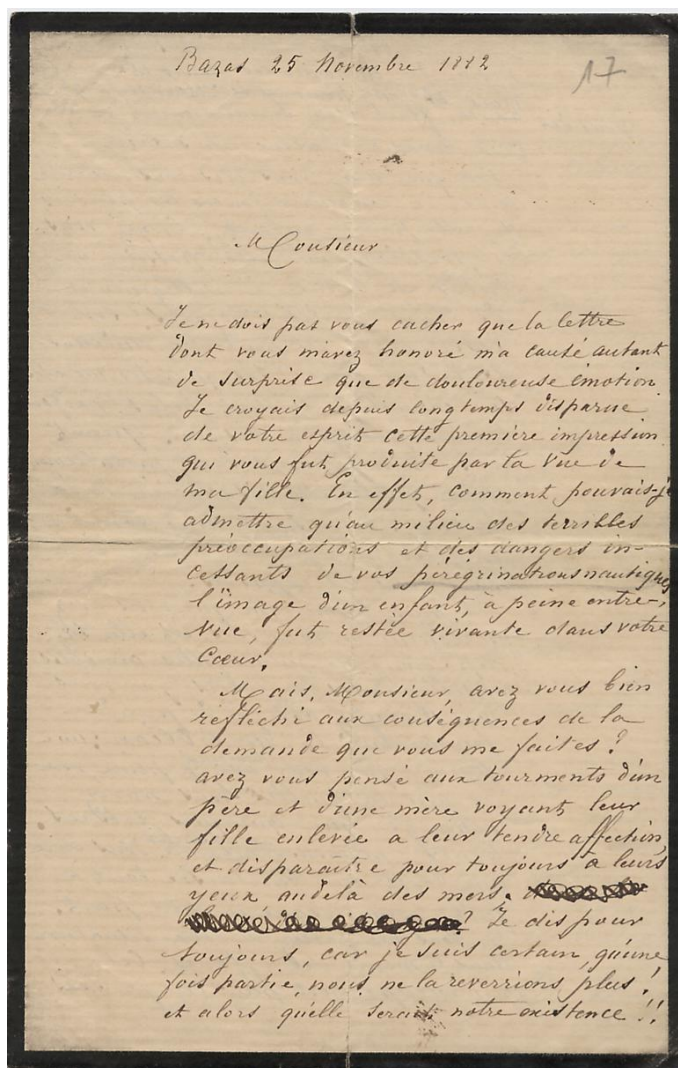 Bazas 25 Novembre 1882
17
Monsieur
Je ne dois pas vous cacher que la lettre
dont vous m'avez honoré m'a causé autant
de surprise que de douloureuse émotion.
Je croyais depuis longtemps disparue
de votre esprit cette première impression
qui vous fut produite par la vue de
ma fille. En effet, comment pouvais-je
admettre qu'au milieu des terribles
préoccupations et des dangers in-
cessants de vos pérégrinations nautiques
l'image d'un enfant, à peine entre-
vue, fut restée vivante dans votre
cœur.
Mais, Monsieur, avez vous bien
réfléchi aux conséquences de la
demande que vous me faites?
avez vous pensé aux tourments d'un
père et d'une mère voyant leur
fille enlevée a leur tendre affection,
et disparaitre pour toujours à leurs
yeux, audelà des mers.
? Je dis pour
toujours, car je suis certain, qu'une
fois partie, nous ne la reverrions plus!
et alors qu'elle serait notre existence!!